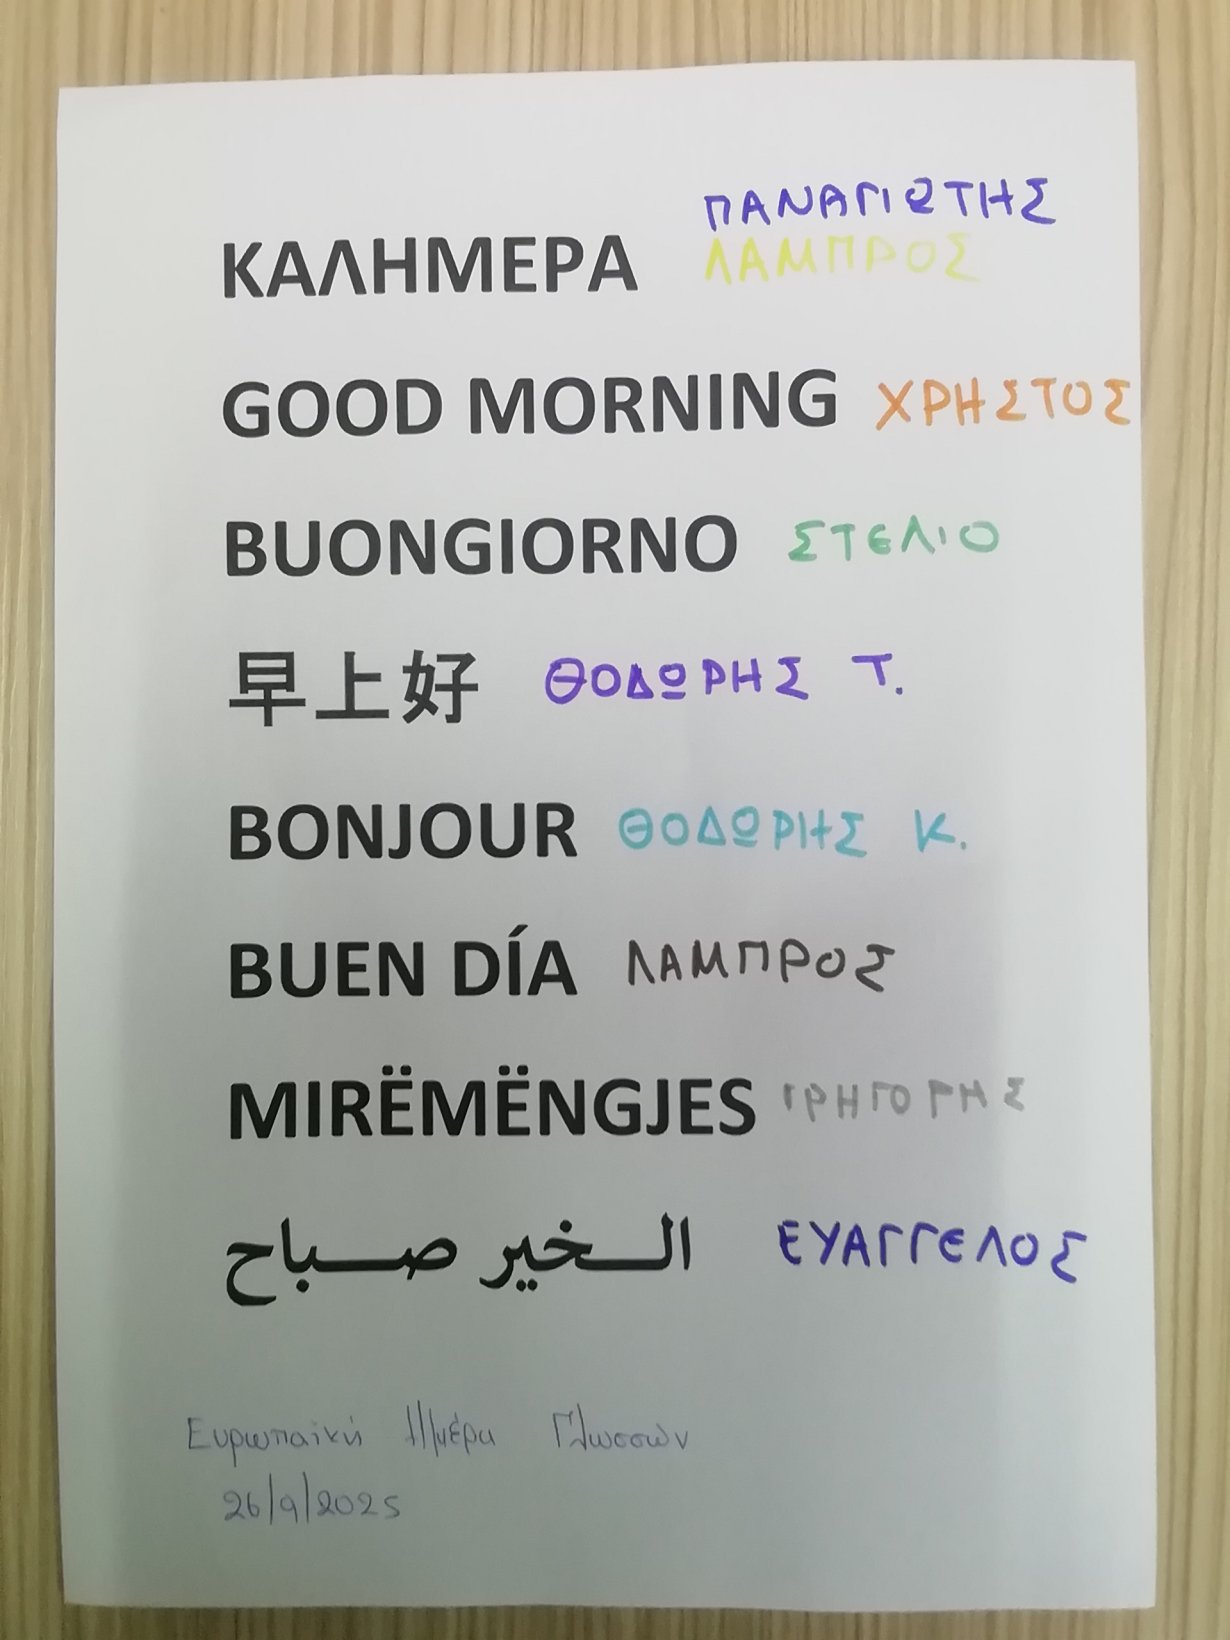 ΠΑΝΑΓΙΩΤΗΣ
ΚΑΛΗΜΕΡΑ ΛΑΜΠΡΟΣ
GOOD MORNING ΧΡΗΣΤΟΣ
BUONGIORNO ΣΤΕΛΙΟ
早上好 ΘΟΔΩΡΗΣ Τ.
BONJOUR ΘΟΔΩΡΗΣ Κ.
BUEN DÍA ΛΑΜΠΡΟΣ
MIRËMËNGJES ΓΡΗΓΟΡΗΣ
الـــخير صـــباح ΕΥΑΓΓΕΛΟΣ
Ευρωπαϊκή Ημέρα Γλωσσών
26/9/2025